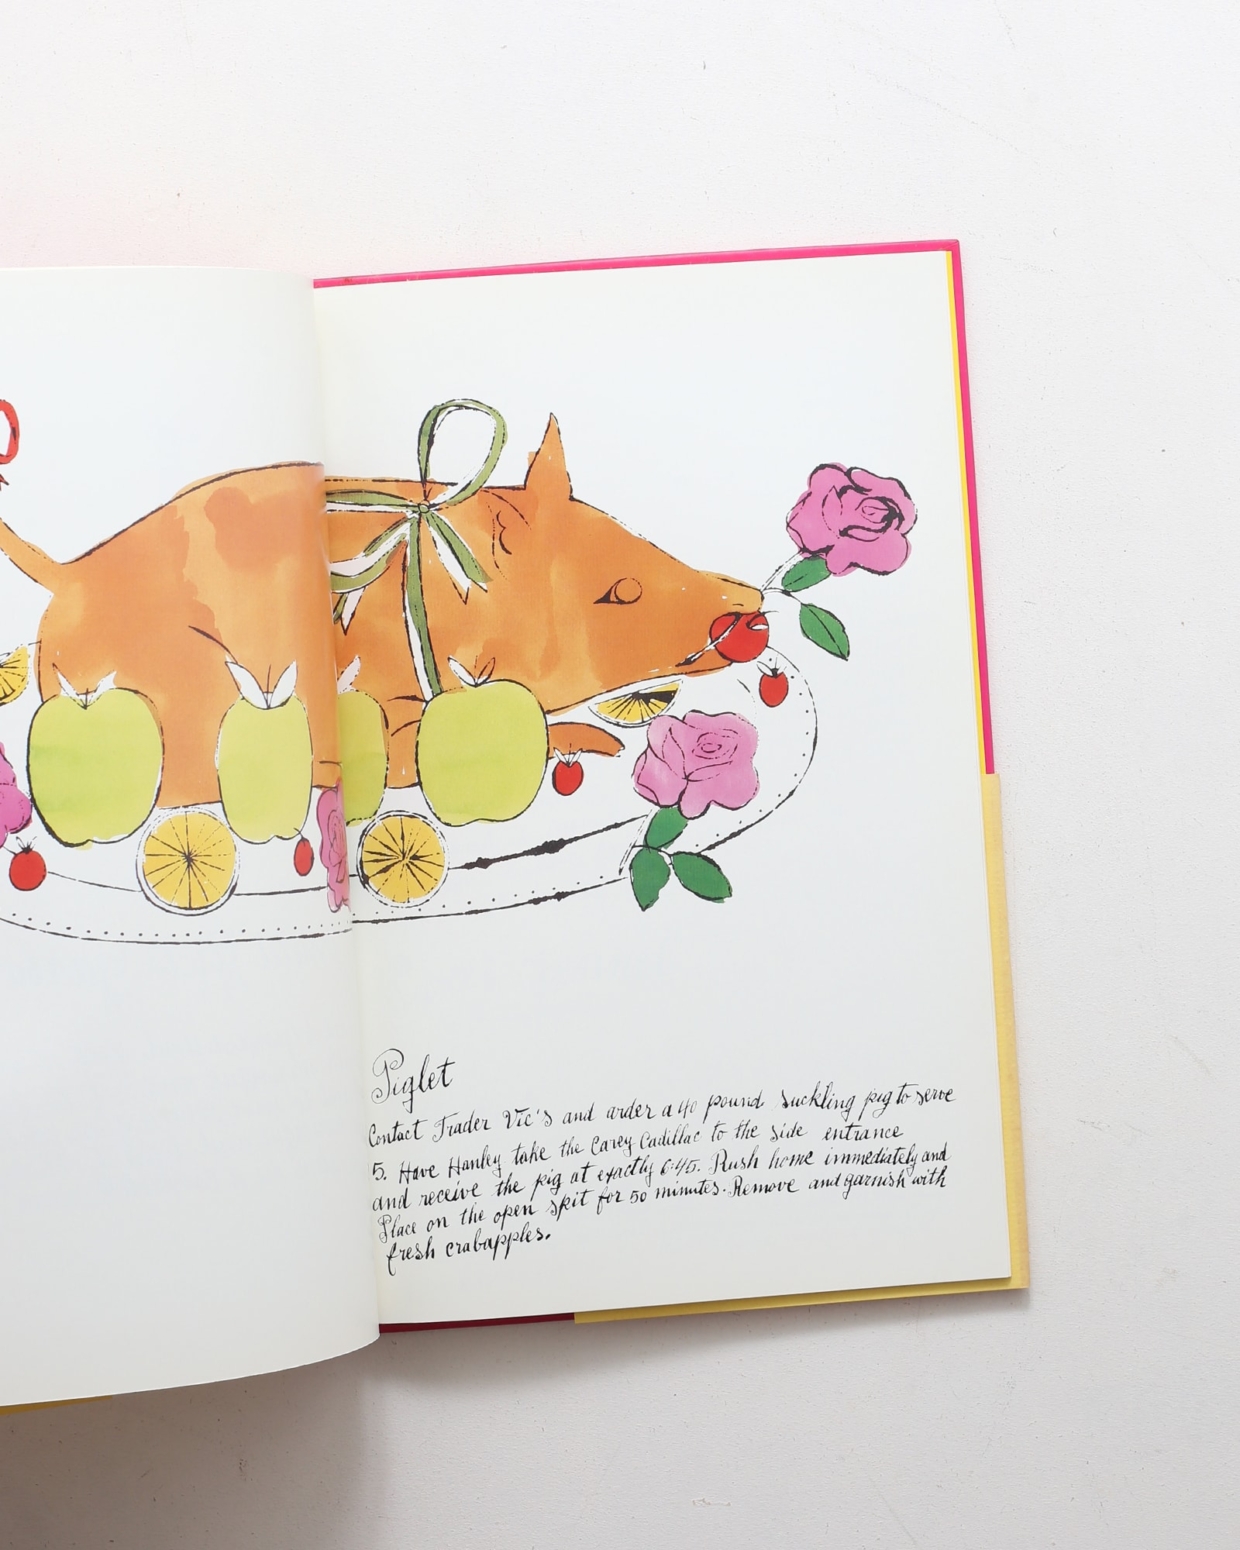 Piglet
Contact Trader Vic's and order a 40 pound suckling pig to serve
5. Have Hanley take the Carey Cadillac to the side entrance
and receive the pig at exactly 6:45. Rush home immediately and
Place on the open spit for 50 minutes. Remove and garnish with
fresh crabapples.